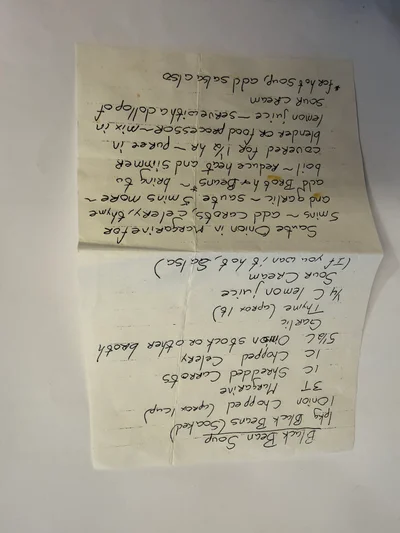 Black Bean Soup
1 pkg Black Beans (Soaked)
1 Onion Chopped (aprox 1 cup)
3T Margarine
1C Shredded Carrots
1C Chopped Celery
5½ C Onion stock or other broth
Garlic
Thyme (aprox 1t)
¼ C lemon juice
Sour Cream
(If you want it hot, Salsa)
Saute Onion in Margarine for
5 mins ~ add carrots, celery, thyme
and garlic ~ saute 5 mins more ~
add Broth & Beans ~ bring to
boil ~ reduce heat and simmer
covered for 1½ hr ~ puree in
blender or food processor ~ mix in
lemon juice ~ serve with a dollop of
sour cream
* for hot soup, add salsa also